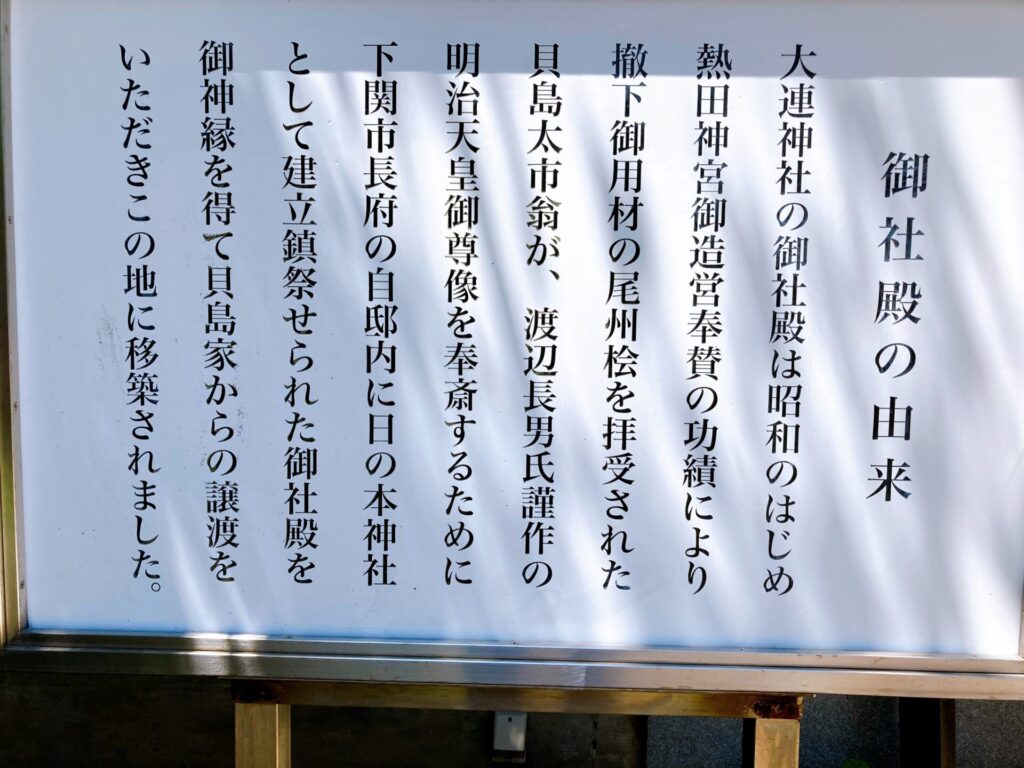 御社殿の由来
大連神社の御社殿は昭和のはじめ
熱田神宮御造営奉賛の功績により
撤下御用材の尾州桧を拝受された
貝島太市翁が、渡辺長男氏謹作の
明治天皇御尊像を奉斎するために
下関市長府の自邸内に日の本神社
として建立鎮祭せられた御社殿を
御神縁を得て貝島家からの譲渡を
いただきこの地に移築されました。